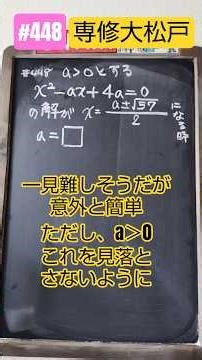 #448 専修大松戸
#448 a>0とする
x²-ax+4a=0
の解が x=(a±√57)/2 になる時
a=□
一見難しそうだが
意外と簡単
ただし、a>0
これを見落と
さないように